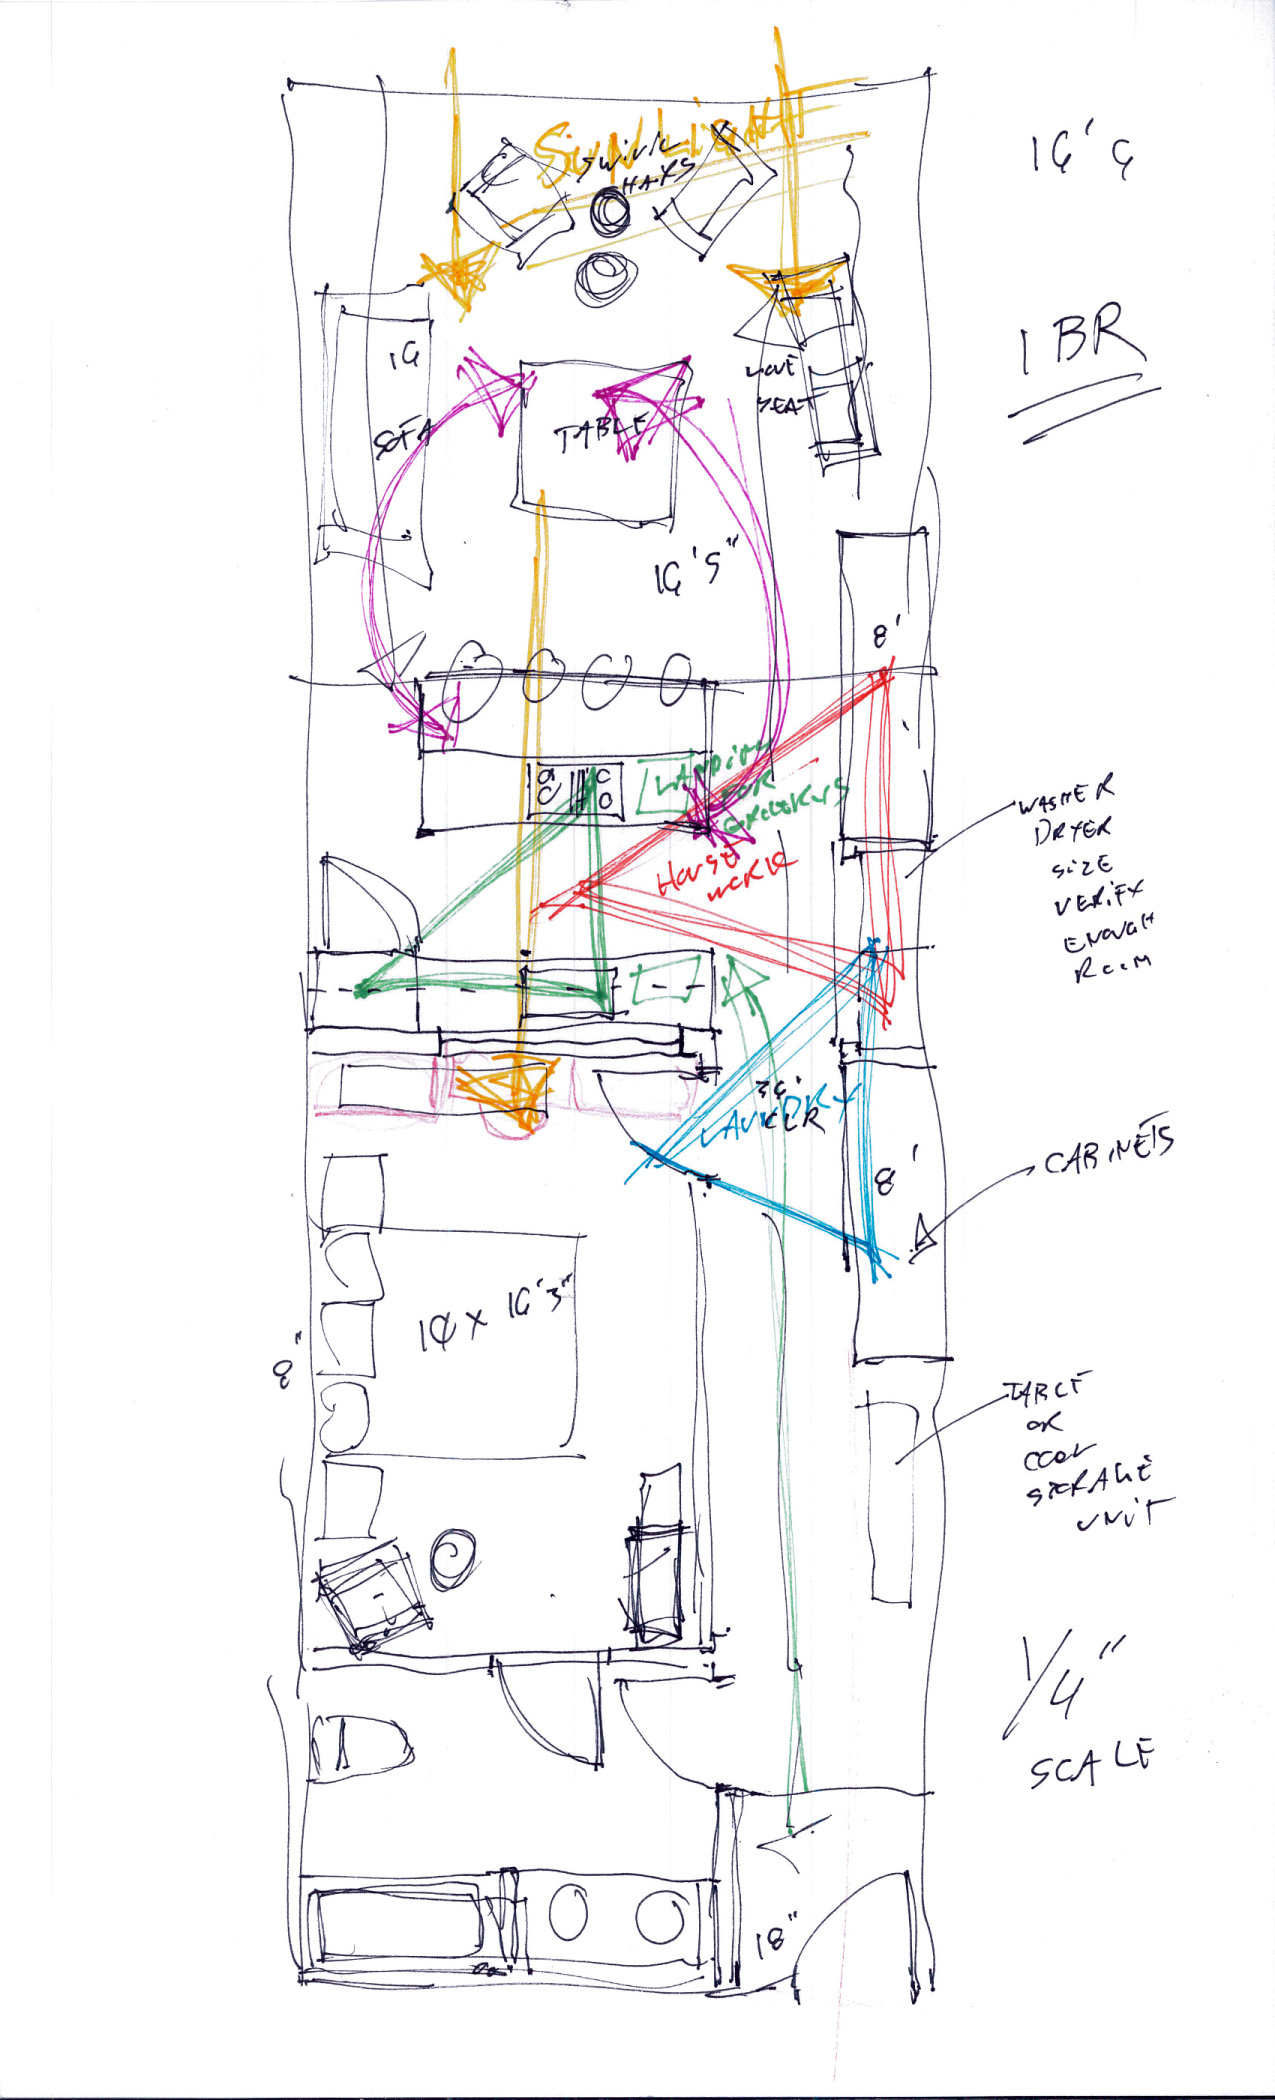 SunLight
SWIVEL
16'6
1 BR
SOFA
TABLE
LOVE
SEAT
16'5"
8'
LANDING
FOR
GROCERYS
HOUSE
WORK
WASHER
DRYER
SIZE
VERIFY
ENOUGH
ROOM
36"
CLR
LAUNDRY
8'
CABINETS
8"
TABLE
OR
COOL
STORAGE
UNIT
1/4"
SCALE
18"